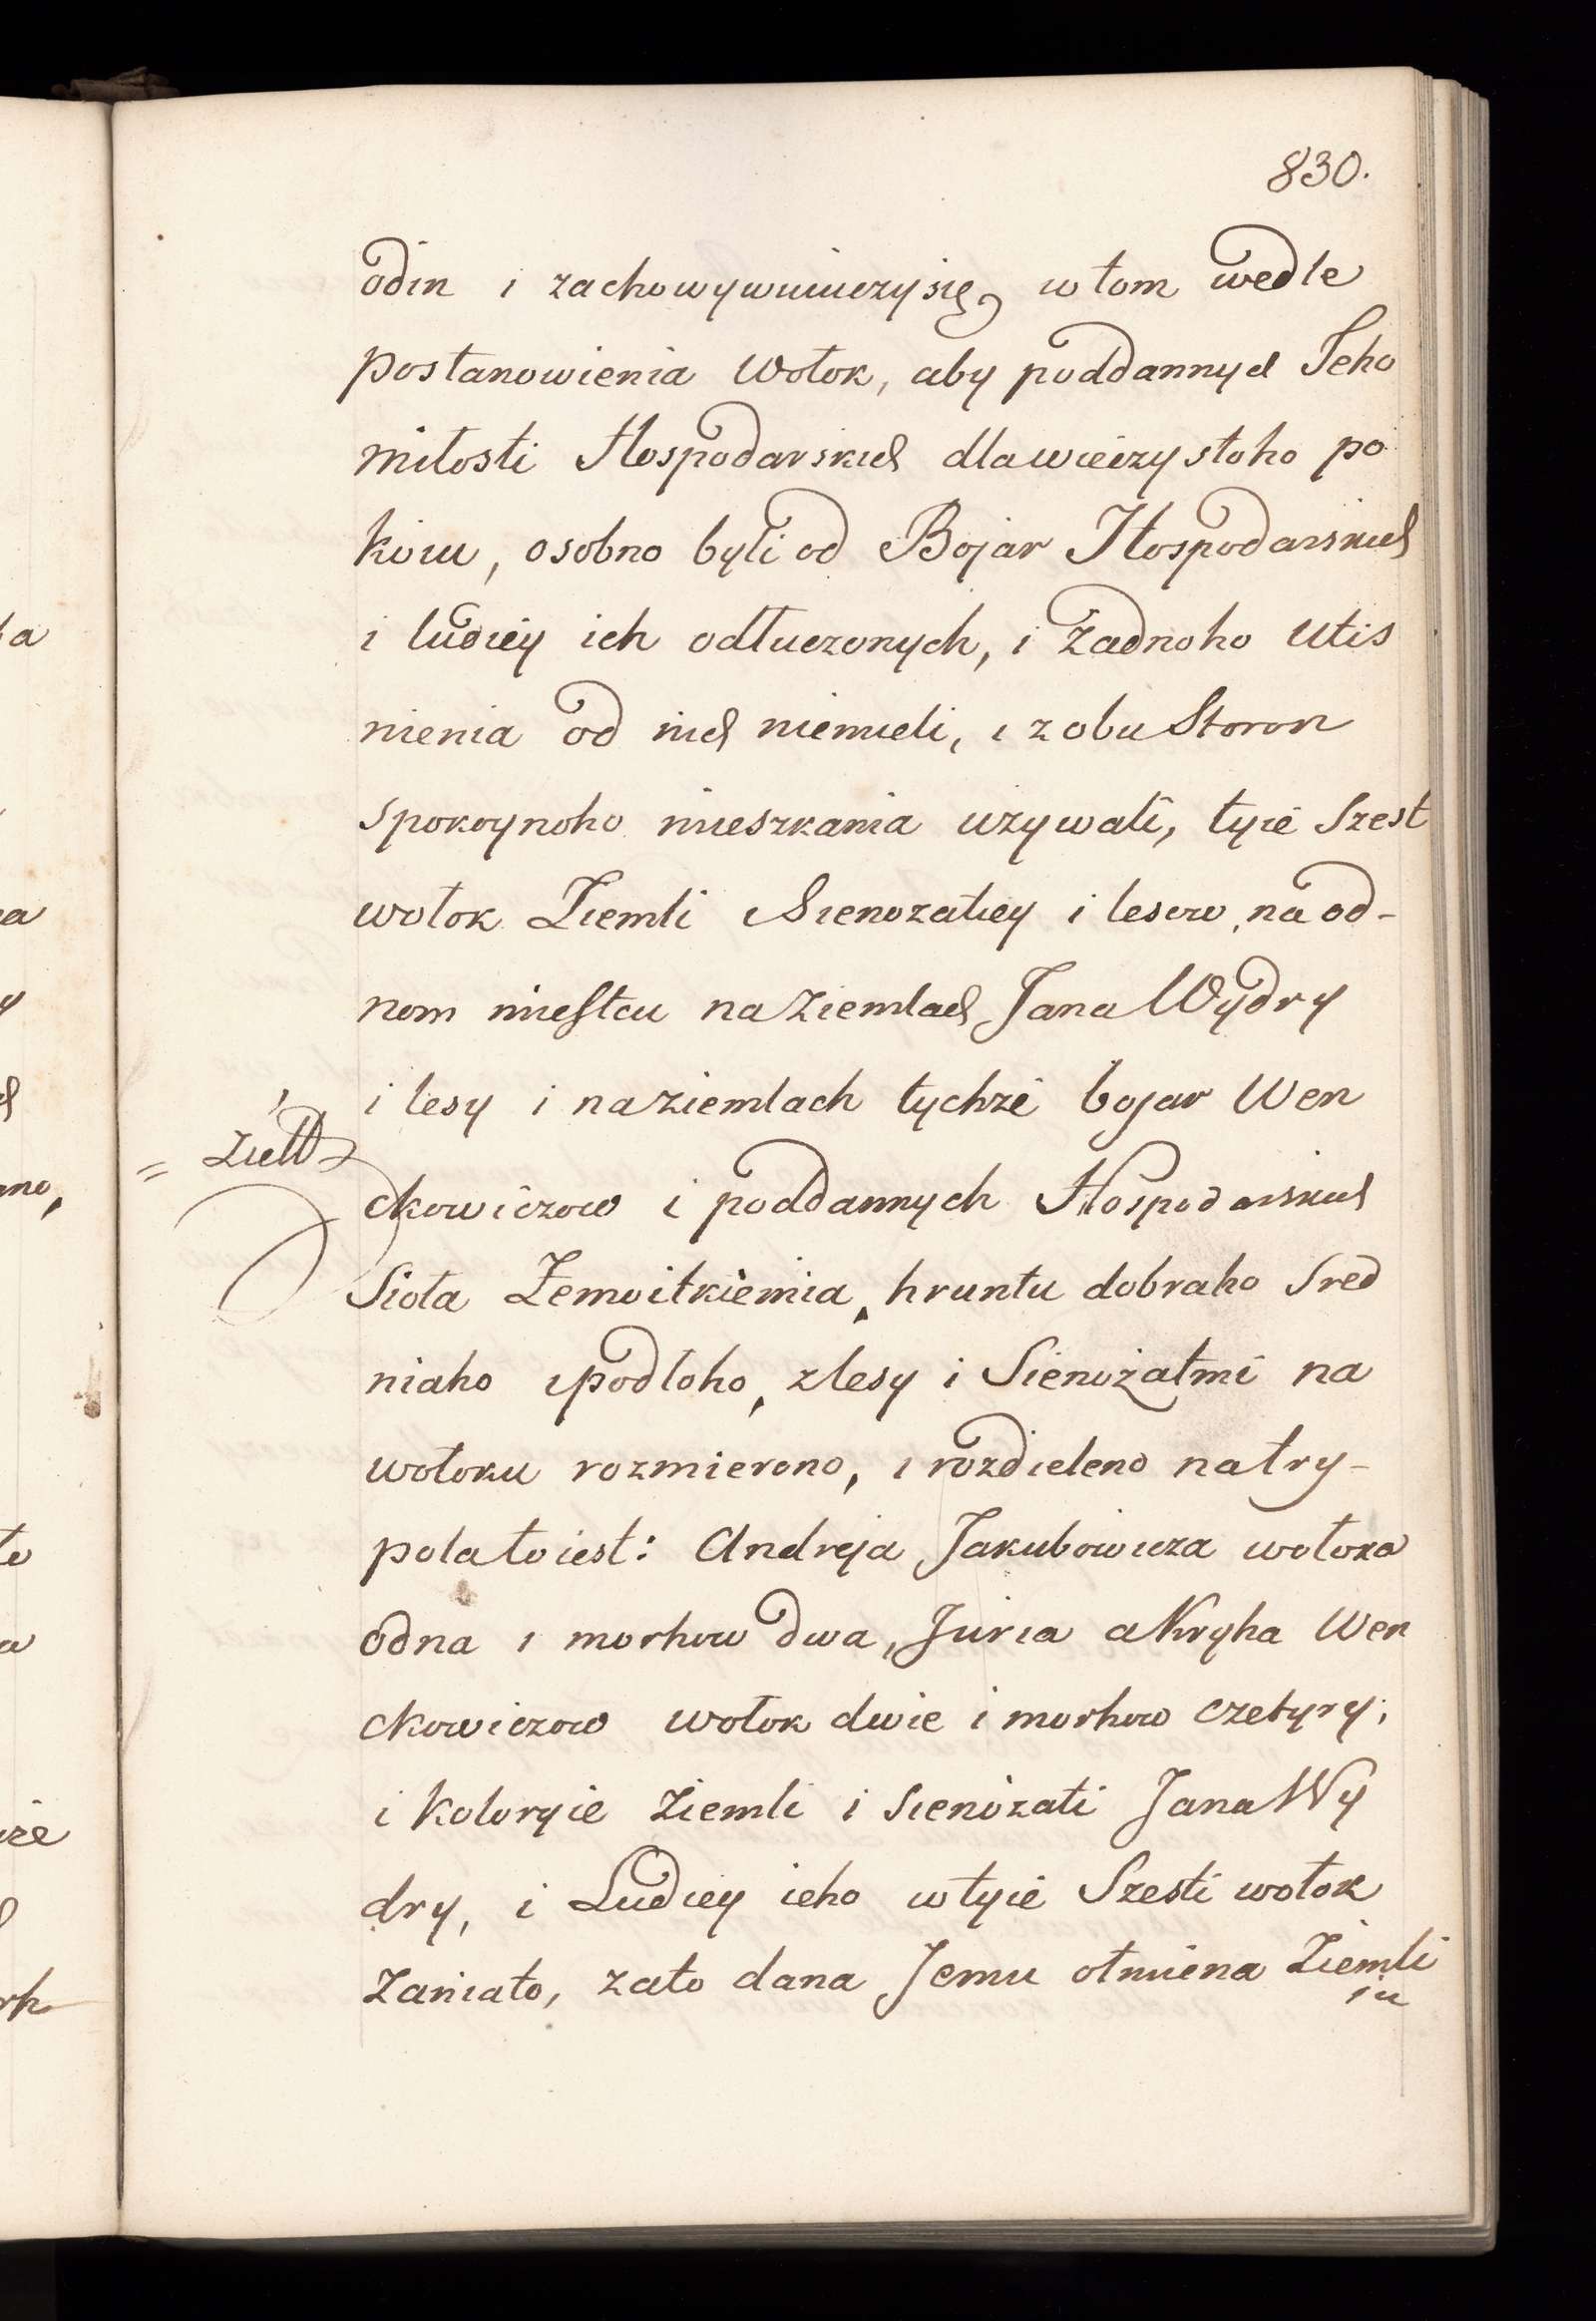 830.
odin i zachowywuiuczysię, w tom wedle
postanowienia Wołok, aby poddannych Jeho
miłosti Hospodarskich dla wieczystoho po
koiu, osobno byli od Bojar Hospodarskich
i ludiey ich odłuczonych, i żadnoho utis
nienia od nich niemieli, i z obu Storon
spokoynoho mieszkania używali, tyie Szest
wołok Ziemli Sienozatiey i lesow, na od-
nom miestcu na Ziemlach Jana Wydry
i lesy i na ziemlach tychże bojar Wen
ckowiczow i poddannych Hospodarskich
Sioła Żemoitkiemia, hruntu dobraho Sred
niaho i podłoho, z lesy i Sienożatmi na
wołoku rozmierono, i rozdieleno na try-
pola to iest: Andreja Jakubowicza wołoka
odna i morhow dwa, Juria a Kryha Wen
ckowiczow wołok dwie i morhow czetyry;
i kotoryie Ziemli i Sienożati Jana Wy
dry, i Ludiey ieho w tyie Szesti wołok
Zaniato, zato dana Jemu otmiena Ziemli
iu